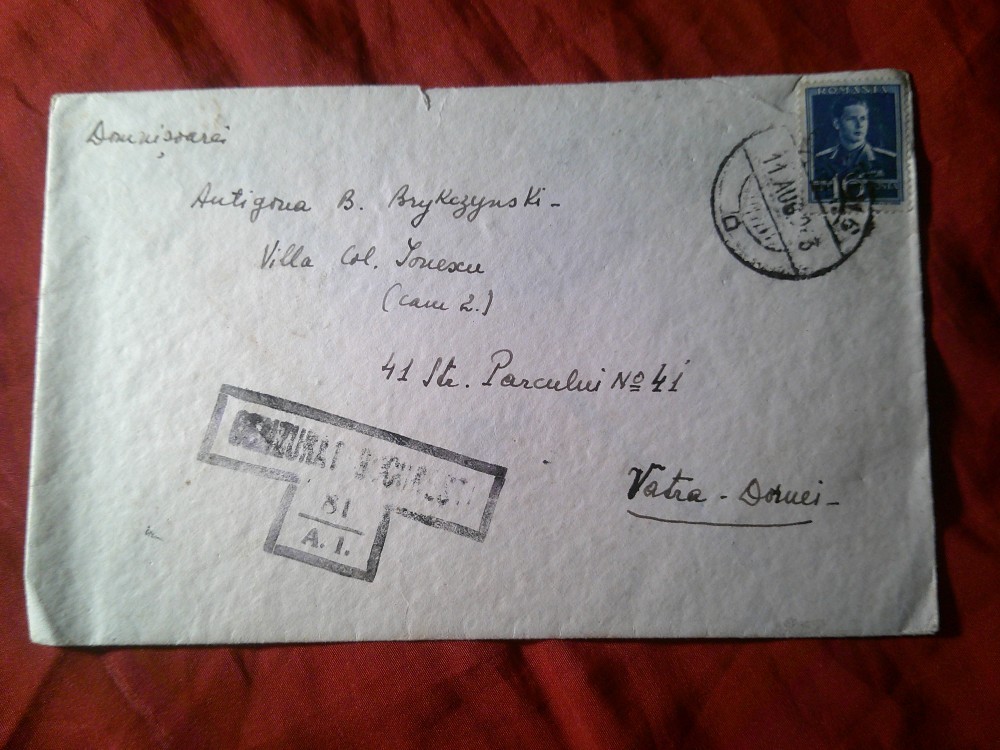 Domnișoarei
Antigona B. Brykczynski-
Villa Col. Ionescu
(cam 2.)
41 Str. Parcului No 41
Vatra - Dornei-
ROMANIA
11 AUG
CENZURAT BUCUREȘTI
81
A. 1.